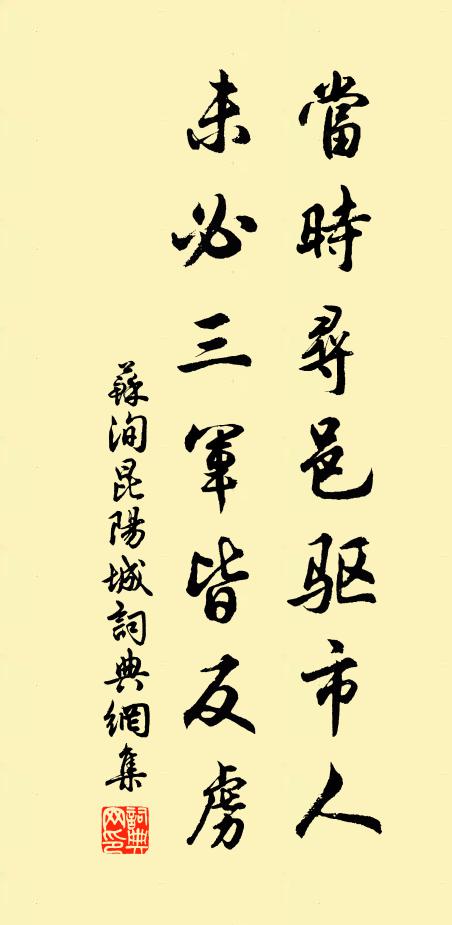 當時尋邑驱市人
未必三軍皆反虜
蘇洵昆陽城詞典網集
詞典
网印